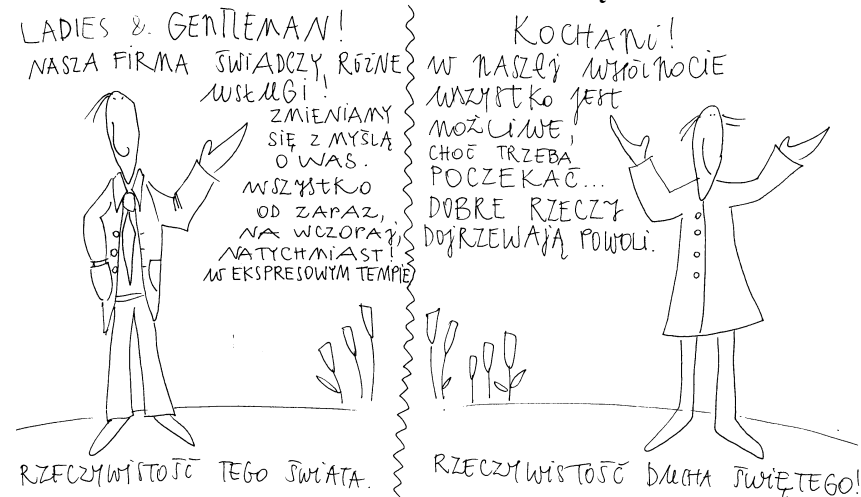 LADIES & GENTLEMAN!
NASZA FIRMA ŚWIADCZY RÓŻNE
USŁUGI!
ZMIENIAMY
SIĘ Z MYŚLĄ
O WAS.
WSZYSTKO
OD ZARAZ,
NA WCZORAJ,
NATYCHMIAST!
W EKSPRESOWYM TEMPIE
RZECZYWISTOŚĆ TEGO ŚWIATA.
KOCHANI!
W NASZEJ WSPÓLNOCIE
WSZYSTKO JEST
MOŻLIWE,
CHOĆ TRZEBA
POCZEKAĆ...
DOBRE RZECZY
DOJRZEWAJĄ POWOLI.
RZECZYWISTOŚĆ DUCHA ŚWIĘTEGO!